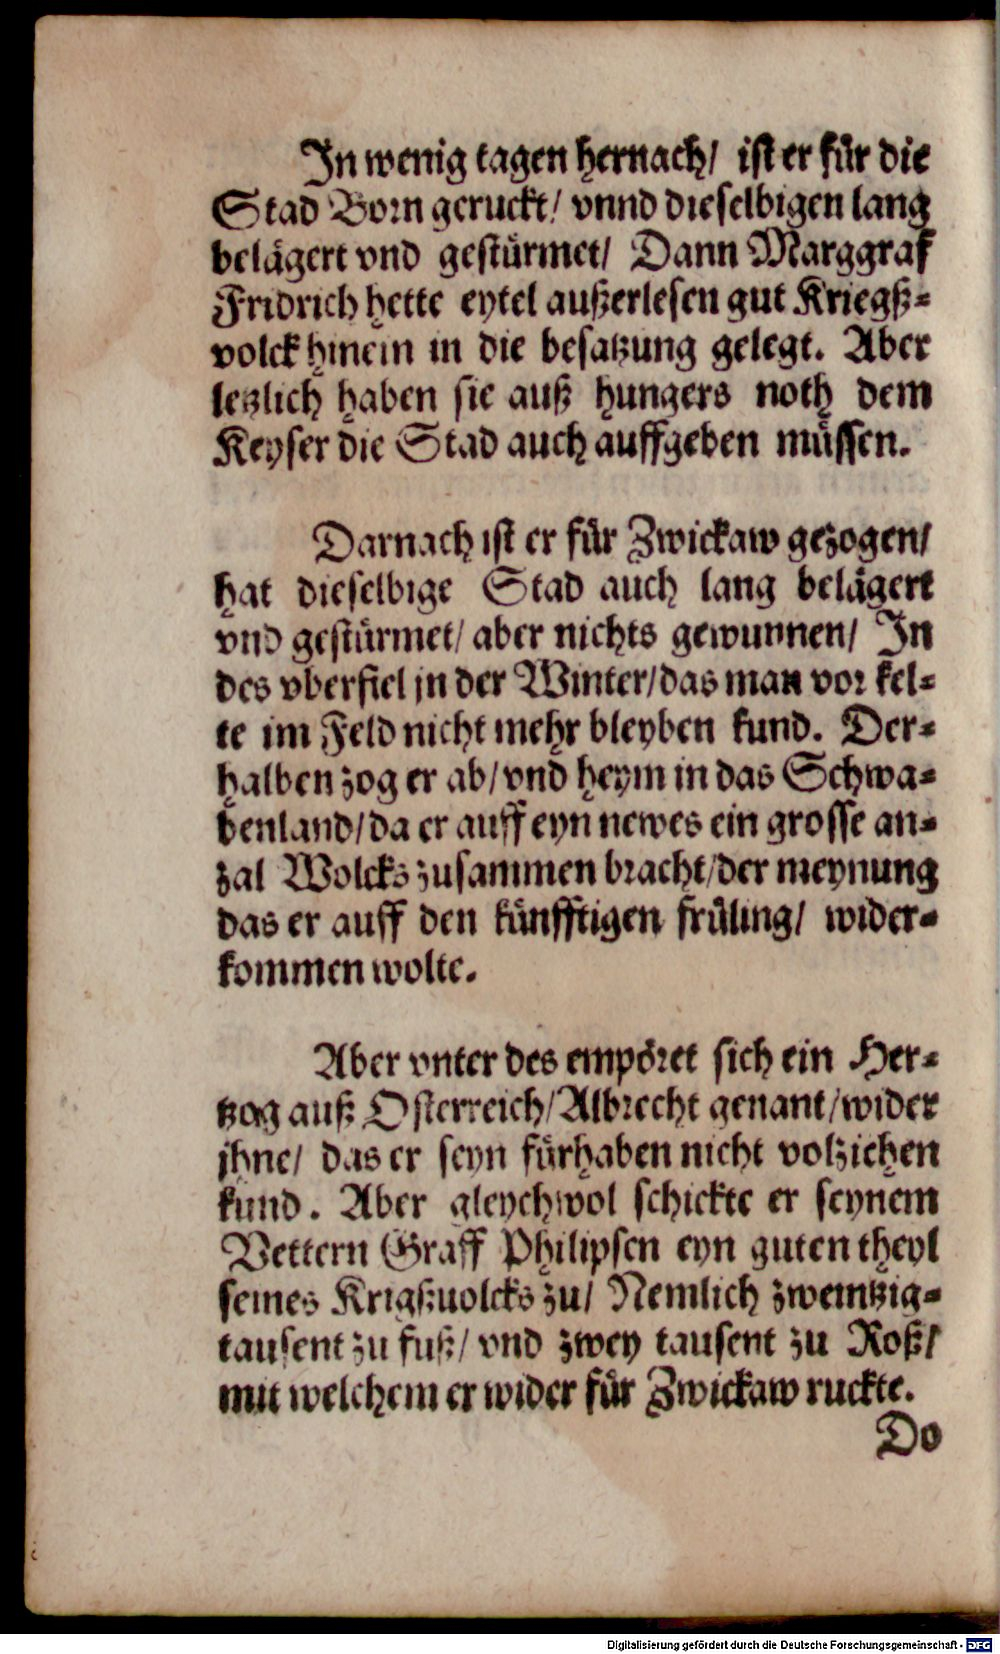 In wenig tagen hernach/ ist er für die
Stad Born geruckt/ vnnd dieselbigen lang
belägert vnd gestürmet/ Dann Marggraf
Fridrich hette eytel außerlesen gut Kriegß-
volck hinein in die besatzung gelegt. Aber
letzlich haben sie auß hungers noth dem
Keyser die Stad auch auffgeben müssen.
Darnach ist er für Zwickaw gezogen/
hat dieselbige Stad auch lang belägert
vnd gestürmet/ aber nichts gewunnen/ In
des vberfiel jn der Winter/ das man vor kel-
te im Feld nicht mehr bleyben kund. Der-
halben zog er ab/ vnd heym in das Schwa-
benland/ da er auff eyn newes ein grosse an-
zal Wolcks zusammen bracht/ der meynung
das er auff den künfftigen früling/ wider-
kommen wolte.
Aber vnter des empöret sich ein Her-
tzog auß Osterreich/ Albrecht genant/ wider
jhne/ das er seyn fürhaben nicht volziehen
kund. Aber gleychwol schickte er seynem
Vettern Graff Philipsen eyn guten theyl
seines Krigßuolcks zu/ Nemlich zweintzig-
tausent zu fuß/ vnd zwey tausent zu Roß/
mit welchem er wider für Zwickaw ruckte.
Do
Digitalisierung gefördert durch die Deutsche Forschungsgemeinschaft - DFG